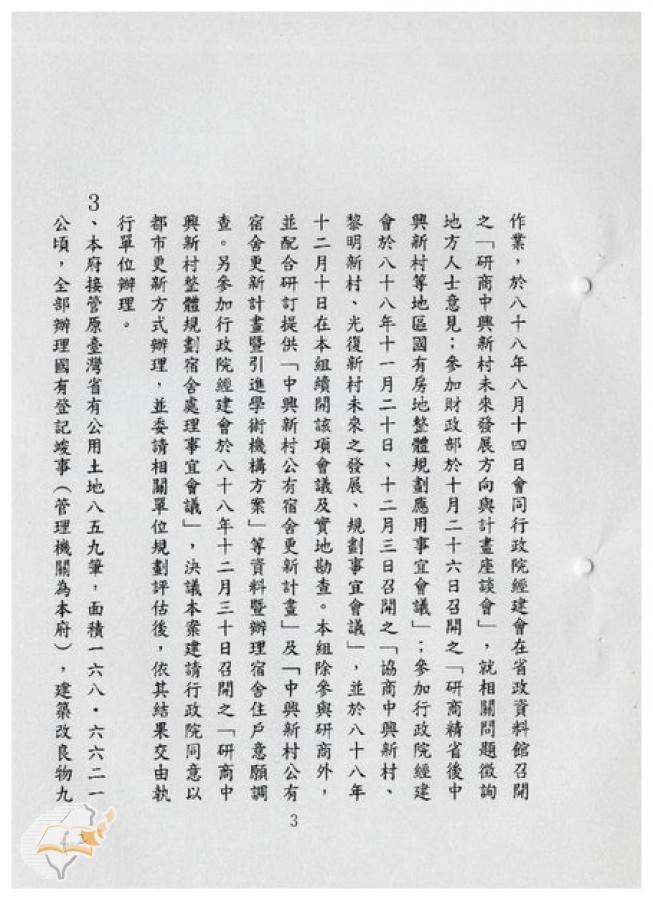 作業，於八十八年八月十四日會同行政院經建會在省政資料館召開
之「研商中興新村未來發展方向與計畫座談會」，就相關問題徵詢
地方人士意見；參加財政部於十月二十六日召開之「研商精省後中
興新村等地區國有房地整體規劃應用事宜會議」；參加行政院經建
會於八十八年十一月二十日、十二月三日召開之「協商中興新村、
黎明新村、光復新村未來之發展、規劃事宜會議」，並於八十八年
十二月十日在本組續開該項會議及實地勘查。本組除參與研商外，
並配合研訂提供「中興新村公有宿舍更新計畫」及「中興新村公有
宿舍更新計畫暨引進學術機構方案」等資料暨辦理宿舍住戶意願調
查。另參加行政院經建會於八十八年十二月三十日召開之「研商中
興新村整體規劃宿舍處理事宜會議」，決議本案建請行政院同意以
都市更新方式辦理，並委請相關單位規劃評估後，依其結果交由執
行單位辦理。
3、本府接管原臺灣省有公用土地八五九筆，面積一六八・六六二一
公頃，全部辦理國有登記竣事（管理機關為本府），建築改良物九
3